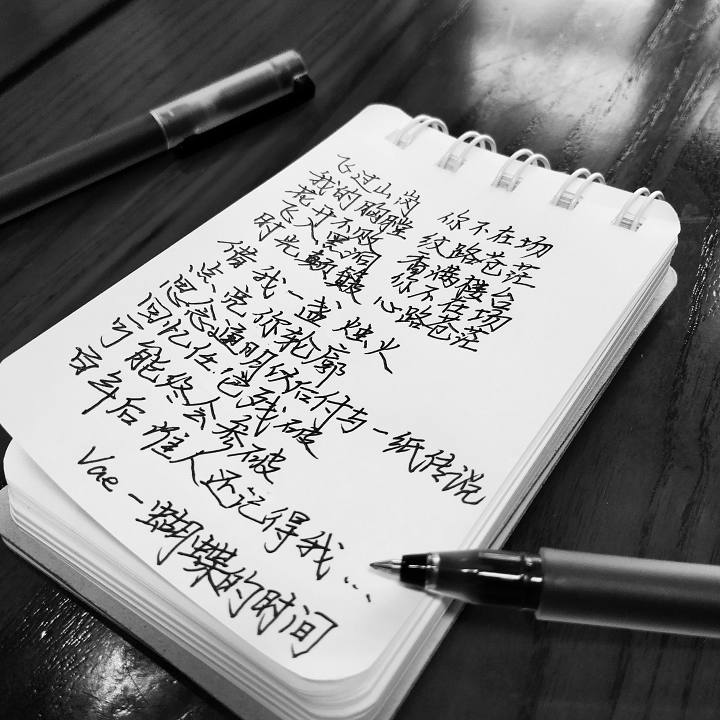 飞过山岗 你不在场
我的胸膛 纹路苍茫
花开不败 香满楼台
飞入黑洞 你不在场
时光颠簸 心路苍茫
借我一盏烛火
点亮你轮廓
思念通明伏后付与一纸传说
回忆任它残破
可能终会参破
百年后谁人还记得我…
Vae-蝴蝶的时间